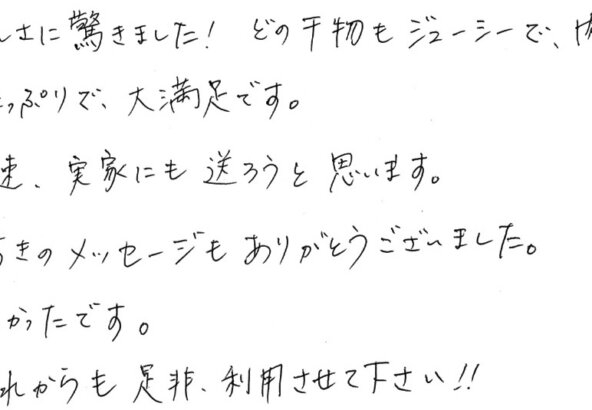 しさに驚きました! どの干物もジューシーで、
っぷりで、大満足です。
速、実家にも送ろうと思います。
きのメッセージもありがとうございました。
かったです。
れからも是非、利用させて下さい!!